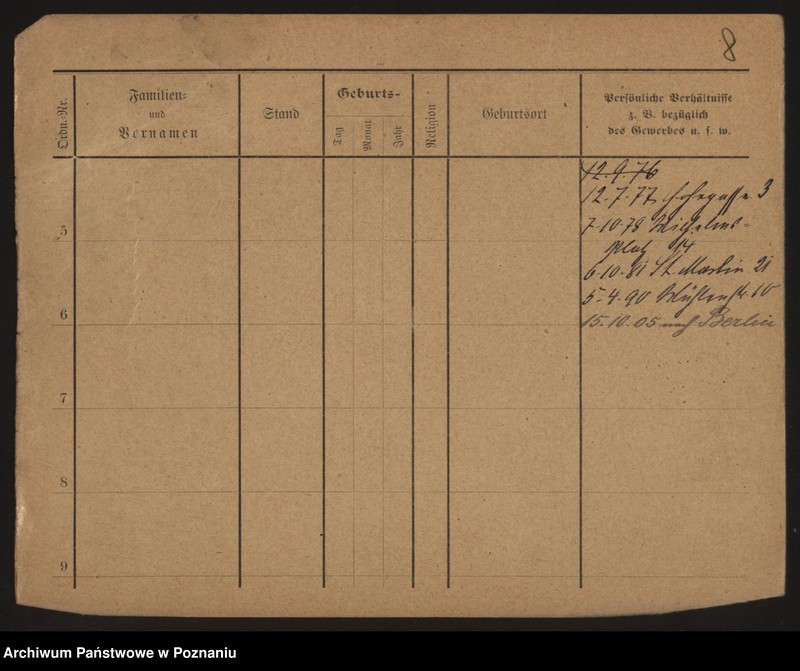 8
Ordn.-Nr.
Familien-
und
Vornamen
Stand
Geburts-
Tag
Monat
Jahr
Religion
Geburtsort
Persönliche Verhältnisse
z. B. bezüglich
des Gewerbes u. s. w.
12.9.76
12.7.77 3
5
7-10-78 Wilhelms-
platz 14
6-10-81 St. Martin 21
5-4-90 Mühlenstr. 10
6
15-10-05 nach Berlin
7
8
9
Archiwum Państwowe w Poznaniu